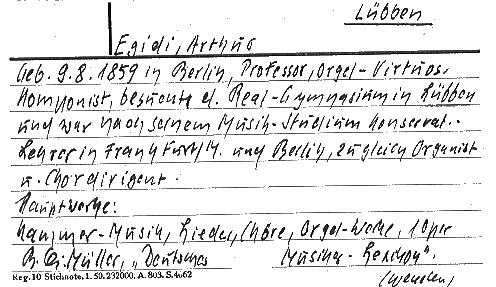 Lübben
Egidi, Arthur
Geb. 9.8.1859 in Berlin, Professor, Orgel-Virtuos.
Komponist, besuchte d. Real-Gymnasium in Lübben
und war nach seinem Musik-Studium Konservat.-
Lehrer in Frankfurt/M. und Berlin, zugleich Organist
u. Chordirigent.
Hauptwerke:
Kammer-Musik, Lieder, Chöre, Orgel-Werke, 1 Oper
Müller, „Deutsches Musiker-Lexikon".
Reg. 10 Stichnote. 1. 50. 232000. A. 803. S. 4062